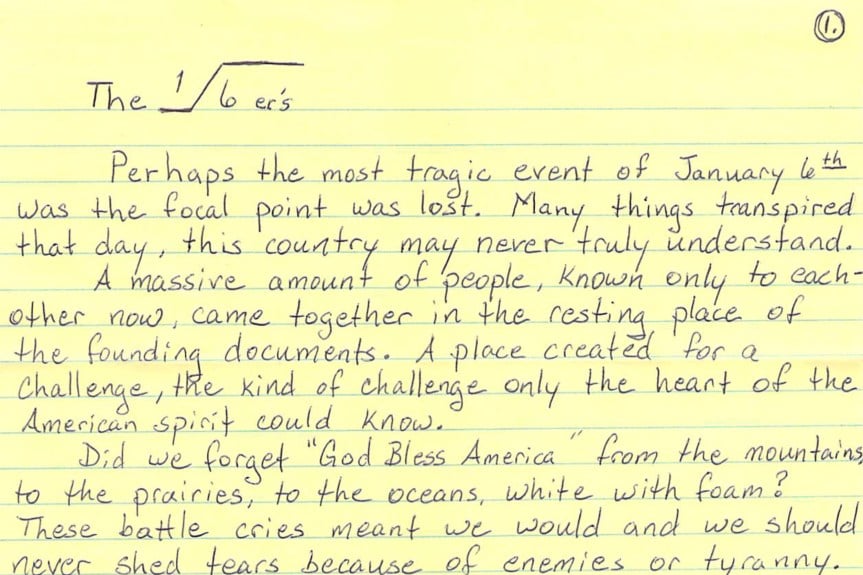 1.
The 1/6 er's
Perhaps the most tragic event of January 6th
was the focal point was lost. Many things transpired
that day, this country may never truly understand.
A massive amount of people, known only to each-
other now, came together in the resting place of
the founding documents. A place created for a
challenge, the kind of challenge only the heart of the
American spirit could know.
Did we forget "God Bless America" from the mountains,
to the prairies, to the oceans, white with foam?
These battle cries meant we would and we should
never shed tears because of enemies or tyranny.